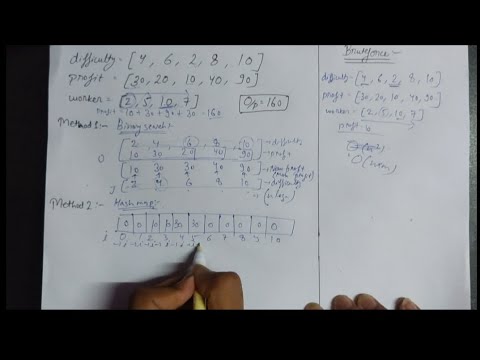 difficulty = [4, 6, 2, 8, 10]
profit = [30, 20, 10, 40, 90]
worker = [2, 5, 10, 7]
profit = 10 + 30 + 90 + 30 = 160
O/p = 160
Method 1:- Binary search
0 [2, 4, 6, 8, 10] → difficulty
[10 30 20 40 90] → profit
[10 30 30 40 90] →
[2 4 6 8 10] → difficulty
Method 2:- Hash map:-
[0 | 0 | 10 | 10 | 30 | 30 | 0 | 0 | 0 | 0 | 0]
i 0 1 2 3 4 5 6 7 8 9 10
Bruteforce:-
difficulty = [4, 6, 2, 8, 10]
profit = [30, 20, 10, 40, 90]
worker = [2, 5, 10, 7]
O(n*m)